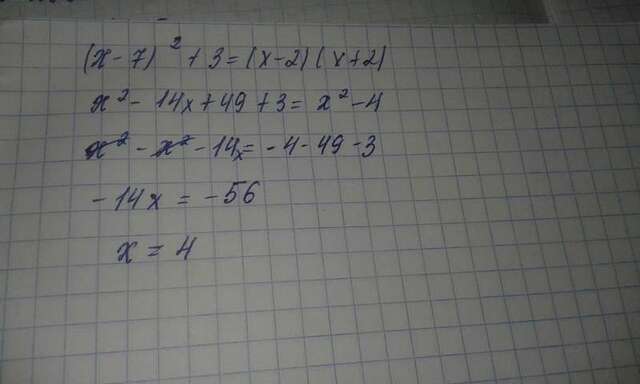 (x - 7)² + 3 = (x - 2)(x + 2)
x² - 14x + 49 + 3 = x² - 4
x² - x² - 14x = -4 - 49 - 3
- 14x = -56
x = 4